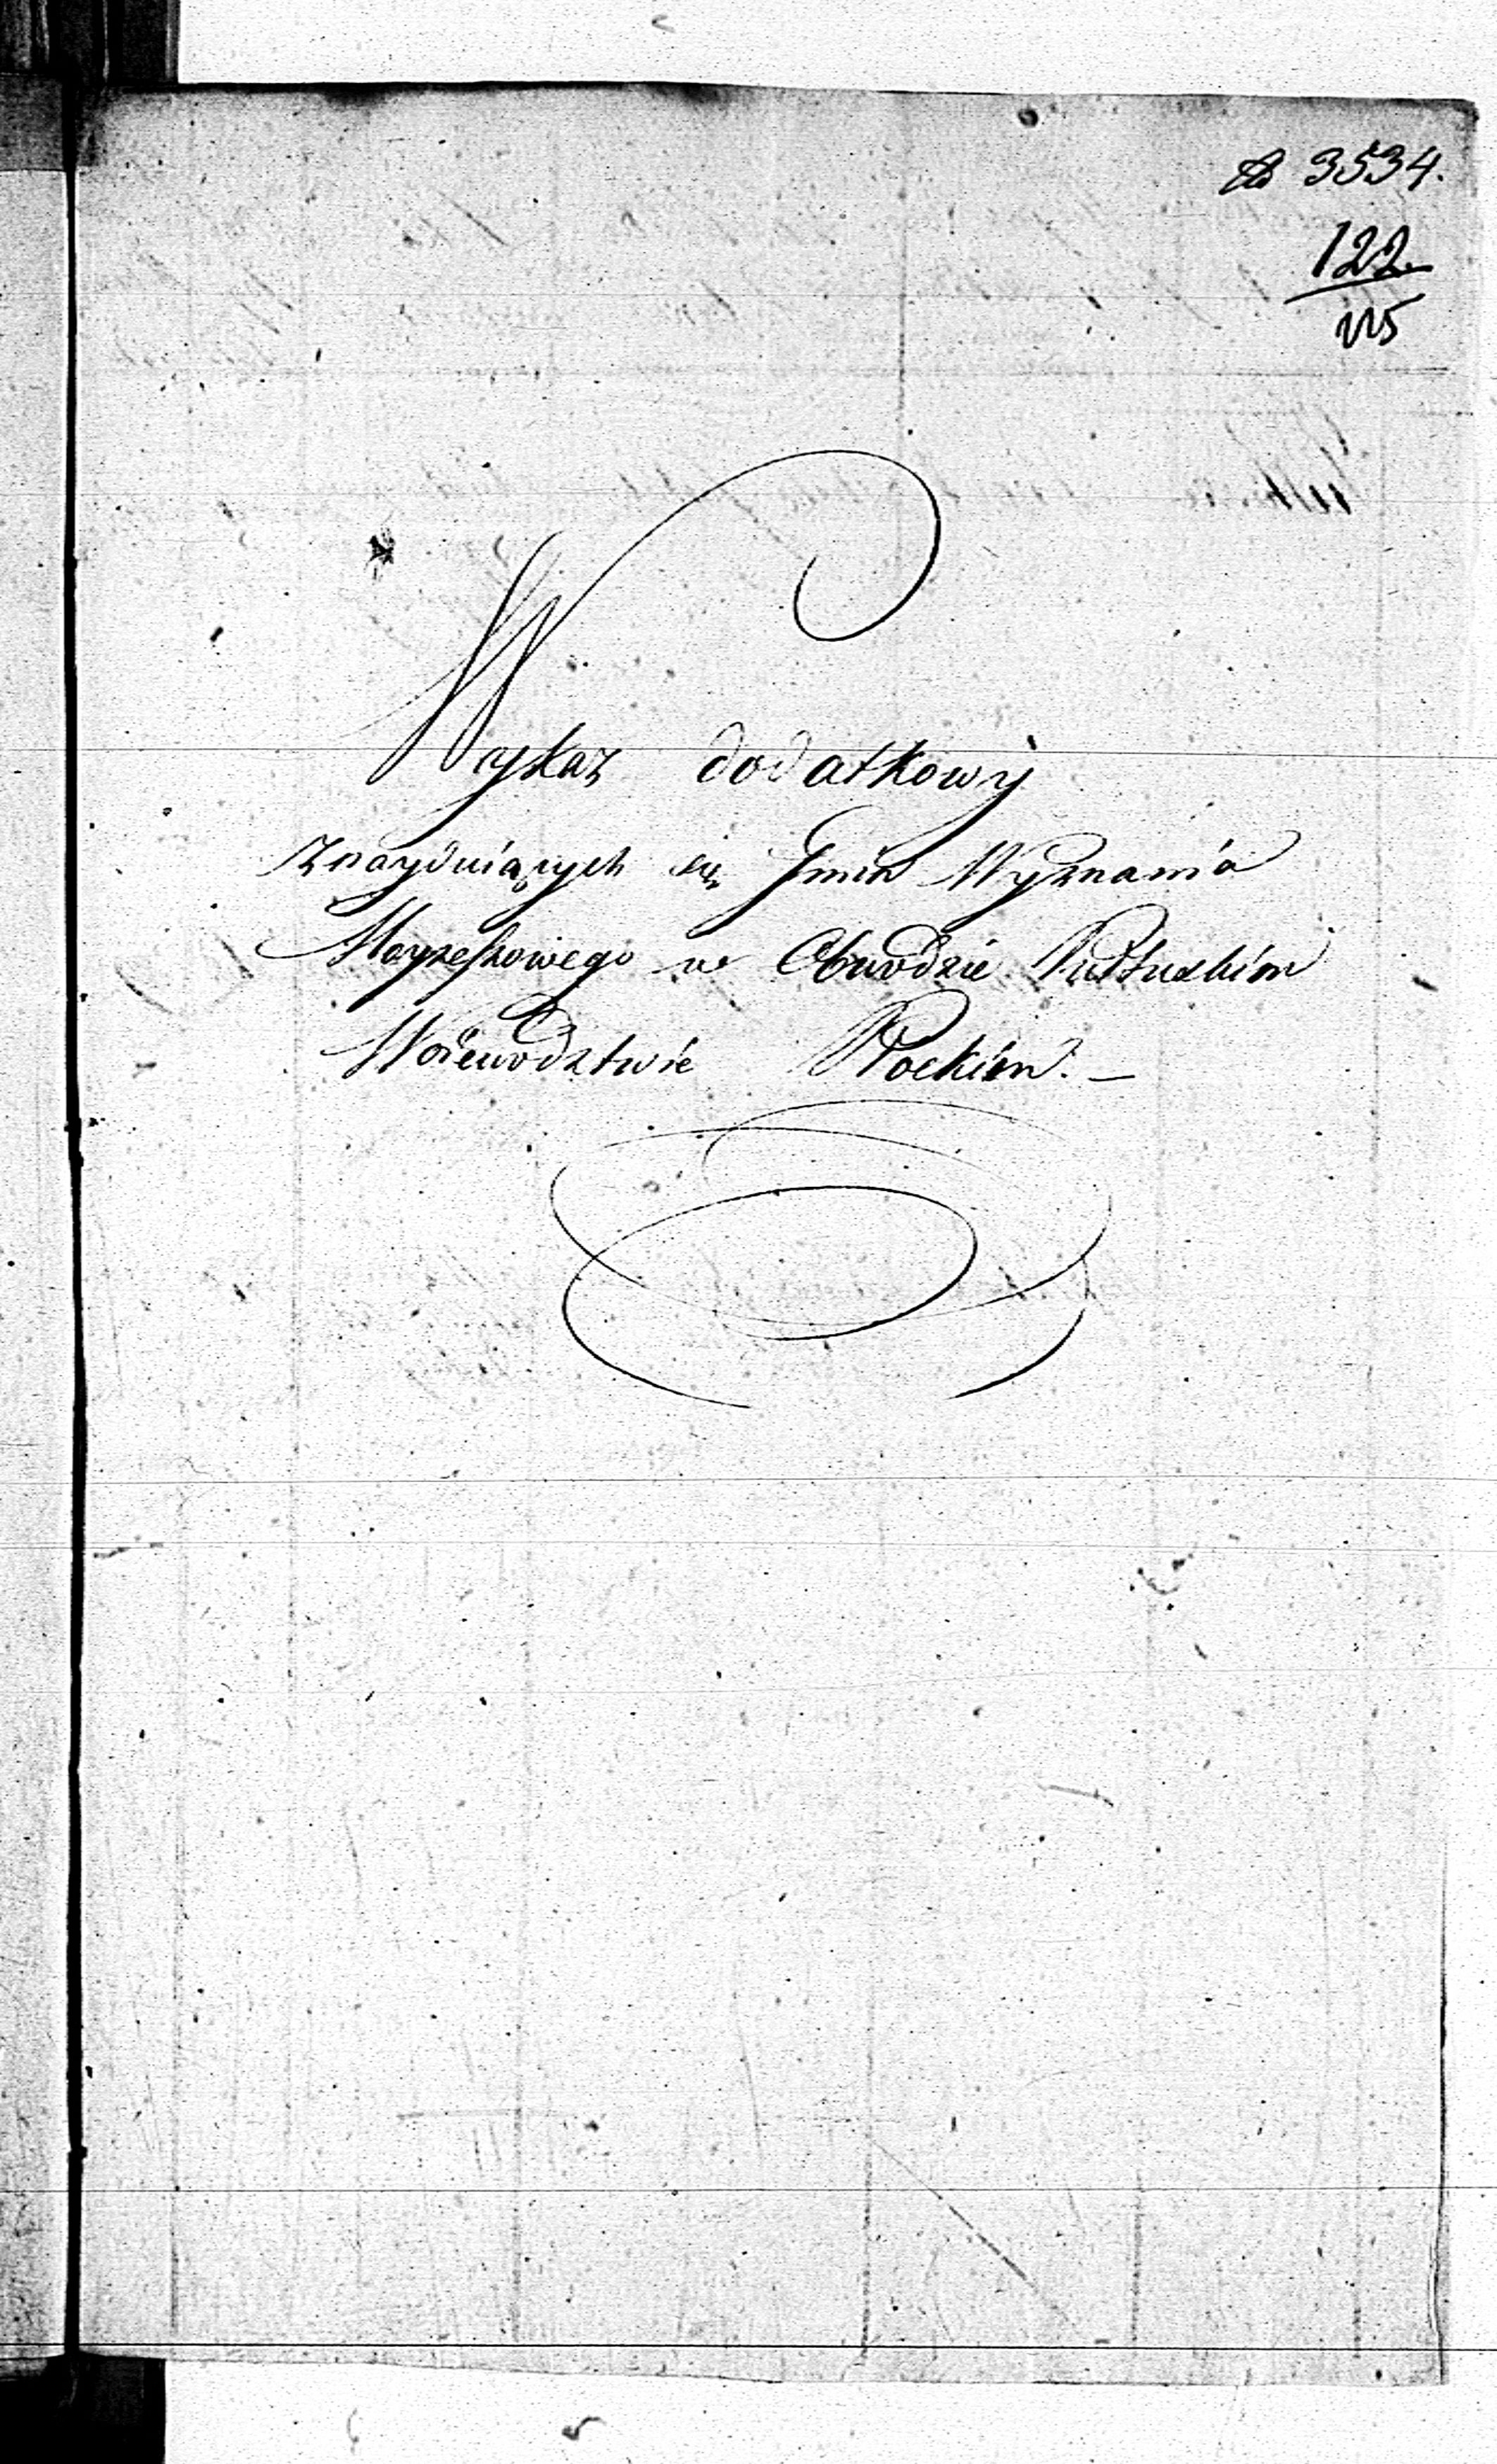 3534.
122
115
Wykaz dodatkowy
Znayduiących się Gmin Wyznania
Moyżeszowego w Obwodzie Pułtuskim
Woiewodztwie Płockim. —